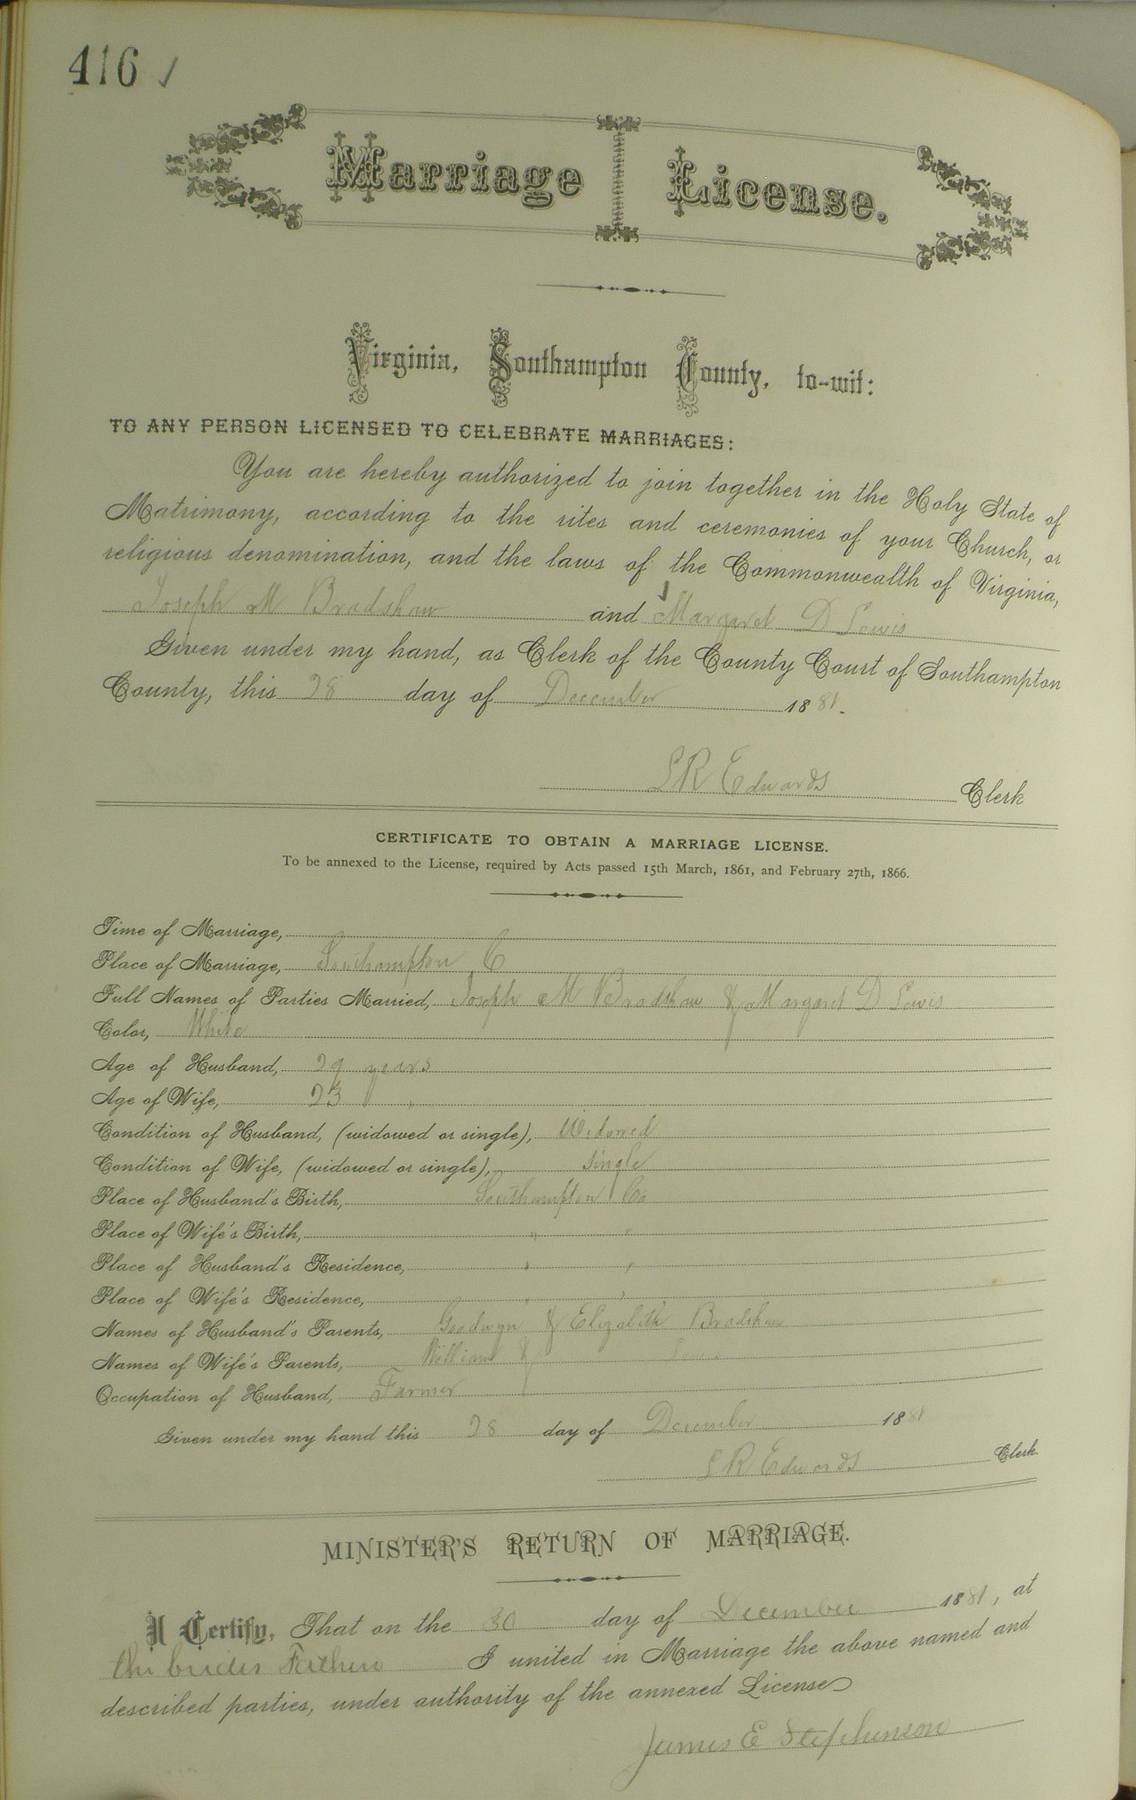 416 ✓
Marriage License.
Virginia, Southampton County, to-wit:
TO ANY PERSON LICENSED TO CELEBRATE MARRIAGES:
You are hereby authorized to join together in the Holy State of
Matrimony, according to the rites and ceremonies of your Church, or
religious denomination, and the laws of the Commonwealth of Virginia,
Joseph M Bradshaw and Margaret D Lewis
Given under my hand, as Clerk of the County Court of Southampton
County, this 28 day of December 1881.
L R Edwards Clerk
CERTIFICATE TO OBTAIN A MARRIAGE LICENSE.
To be annexed to the License, required by Acts passed 15th March, 1861, and February 27th, 1866.
Time of Marriage,
Place of Marriage, Southampton C
Full Names of Parties Married, Joseph M Bradshaw & Margaret D Lewis
Color, White
Age of Husband, 29 years
Age of Wife, 23 "
Condition of Husband, (widowed or single), Widowed
Condition of Wife, (widowed or single), Single
Place of Husband's Birth, Southampton Co
Place of Wife's Birth, " "
Place of Husband's Residence, " "
Place of Wife's Residence, " "
Names of Husband's Parents, Goodwyn & Elizabeth Bradshaw
Names of Wife's Parents, William & Lewis
Occupation of Husband, Farmer
Given under my hand this 28 day of December 1881
L R Edwards Clerk
MINISTER'S RETURN OF MARRIAGE.
I Certify, That on the 30 day of December 1881, at
the brides Father I united in Marriage the above named and
described parties, under authority of the annexed License
James E Stephenson